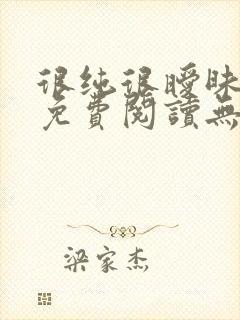 很纯很暧昧
免費閱讀無
梁家杰